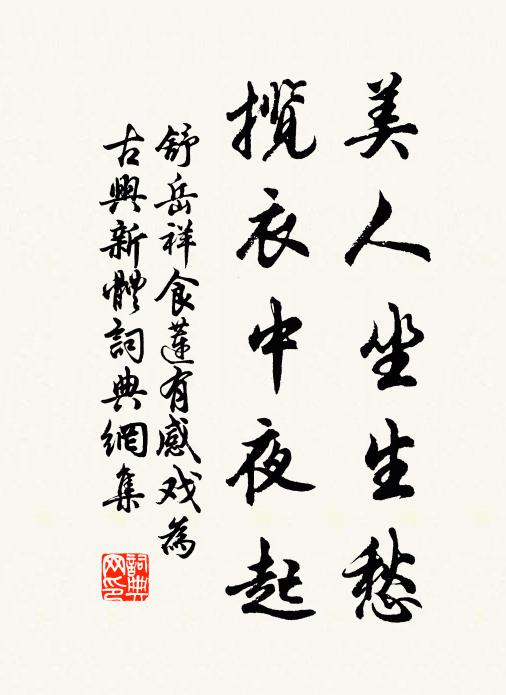 美人坐生愁
揽衣中夜起
舒岳祥食莲有感戏為
古興新體詞典網集
詞典
网印